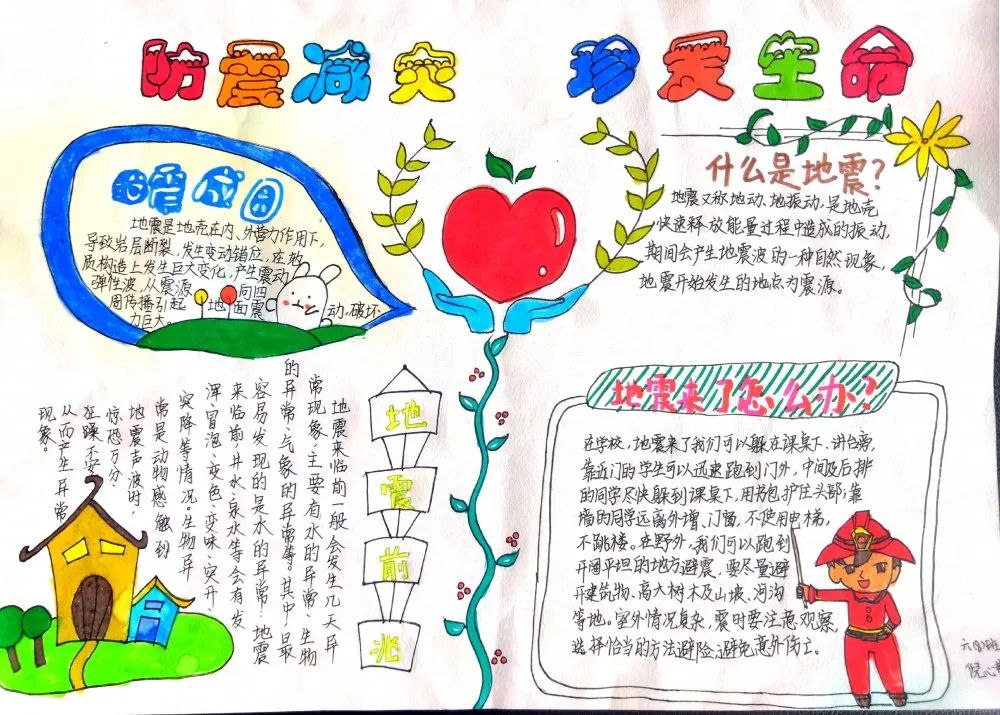 防震减灾 珍爱生命
地震成因
地震是地壳在内、外营力作用下,
导致岩层断裂,发生变动错位,在地
质构造上发生巨大变化,产生震动
弹性波,从震源 向四
周传播引起 地面震 动,破坏
力巨大。
什么是地震?
地震又称地动、地振动,是地壳
快速释放能量过程中造成的振动,
期间会产生地震波的一种自然现象,
地震开始发生的地点为震源。
地震前兆
地震来临前一般会发生几大异
常现象,主要有水的异常、生物
的异常、气象的异常等。其中,最
容易发现的是水的异常,地震
来临前井水、泉水等会有发
浑、冒泡、变色、变味、突升、
突降等情况。生物异
常是动物感触到
地震声波时,
惊恐万分、
狂躁不安
从而产生异常
现象。
地震来了怎么办?
在学校,地震来了我们可以躲在课桌下、讲台旁,
靠近门的学生可以迅速跑到门外,中间及后排
的同学尽快躲到课桌下,用书包护住头部;靠
墙的同学远离外墙、门窗,不使用电梯,
不跳楼。在野外,我们可以跑到
开阔平坦的地方避震,要尽量避
开建筑物、高大树木及山坡、河沟
等地。室外情况复杂,震时要注意观察,
选择恰当的方法避险,避免意外伤亡。
六四班